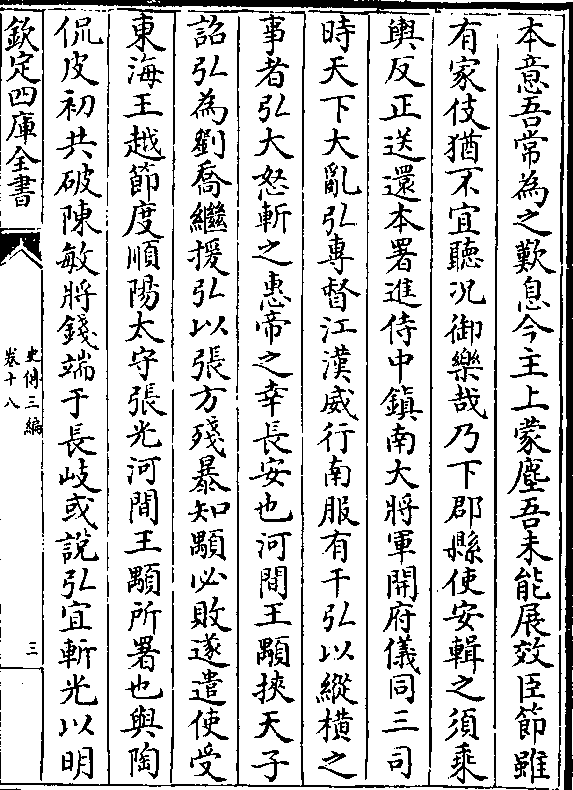 本意吾常為之歎息今主上蒙塵吾未能展效臣節雖
有家伎猶不宜聽况御樂哉乃下郡縣使安輯之須乘
輿反正送還本署進侍中鎮南大將軍開府儀同三司
時天下大亂弘專督江漢威行南服有干弘以縱橫之
事者弘大怒斬之惠帝之幸長安也河間王顒挾天子
詔弘為劉喬繼援弘以張方殘暴知顒必敗遂遣使受
東海王越節度順陽太守張光河間王顒所署也與陶
侃皮初共破陳敏將錢端于長岐或說弘宜斬光以明
欽定四庫全書
史傳三編
卷十八
三